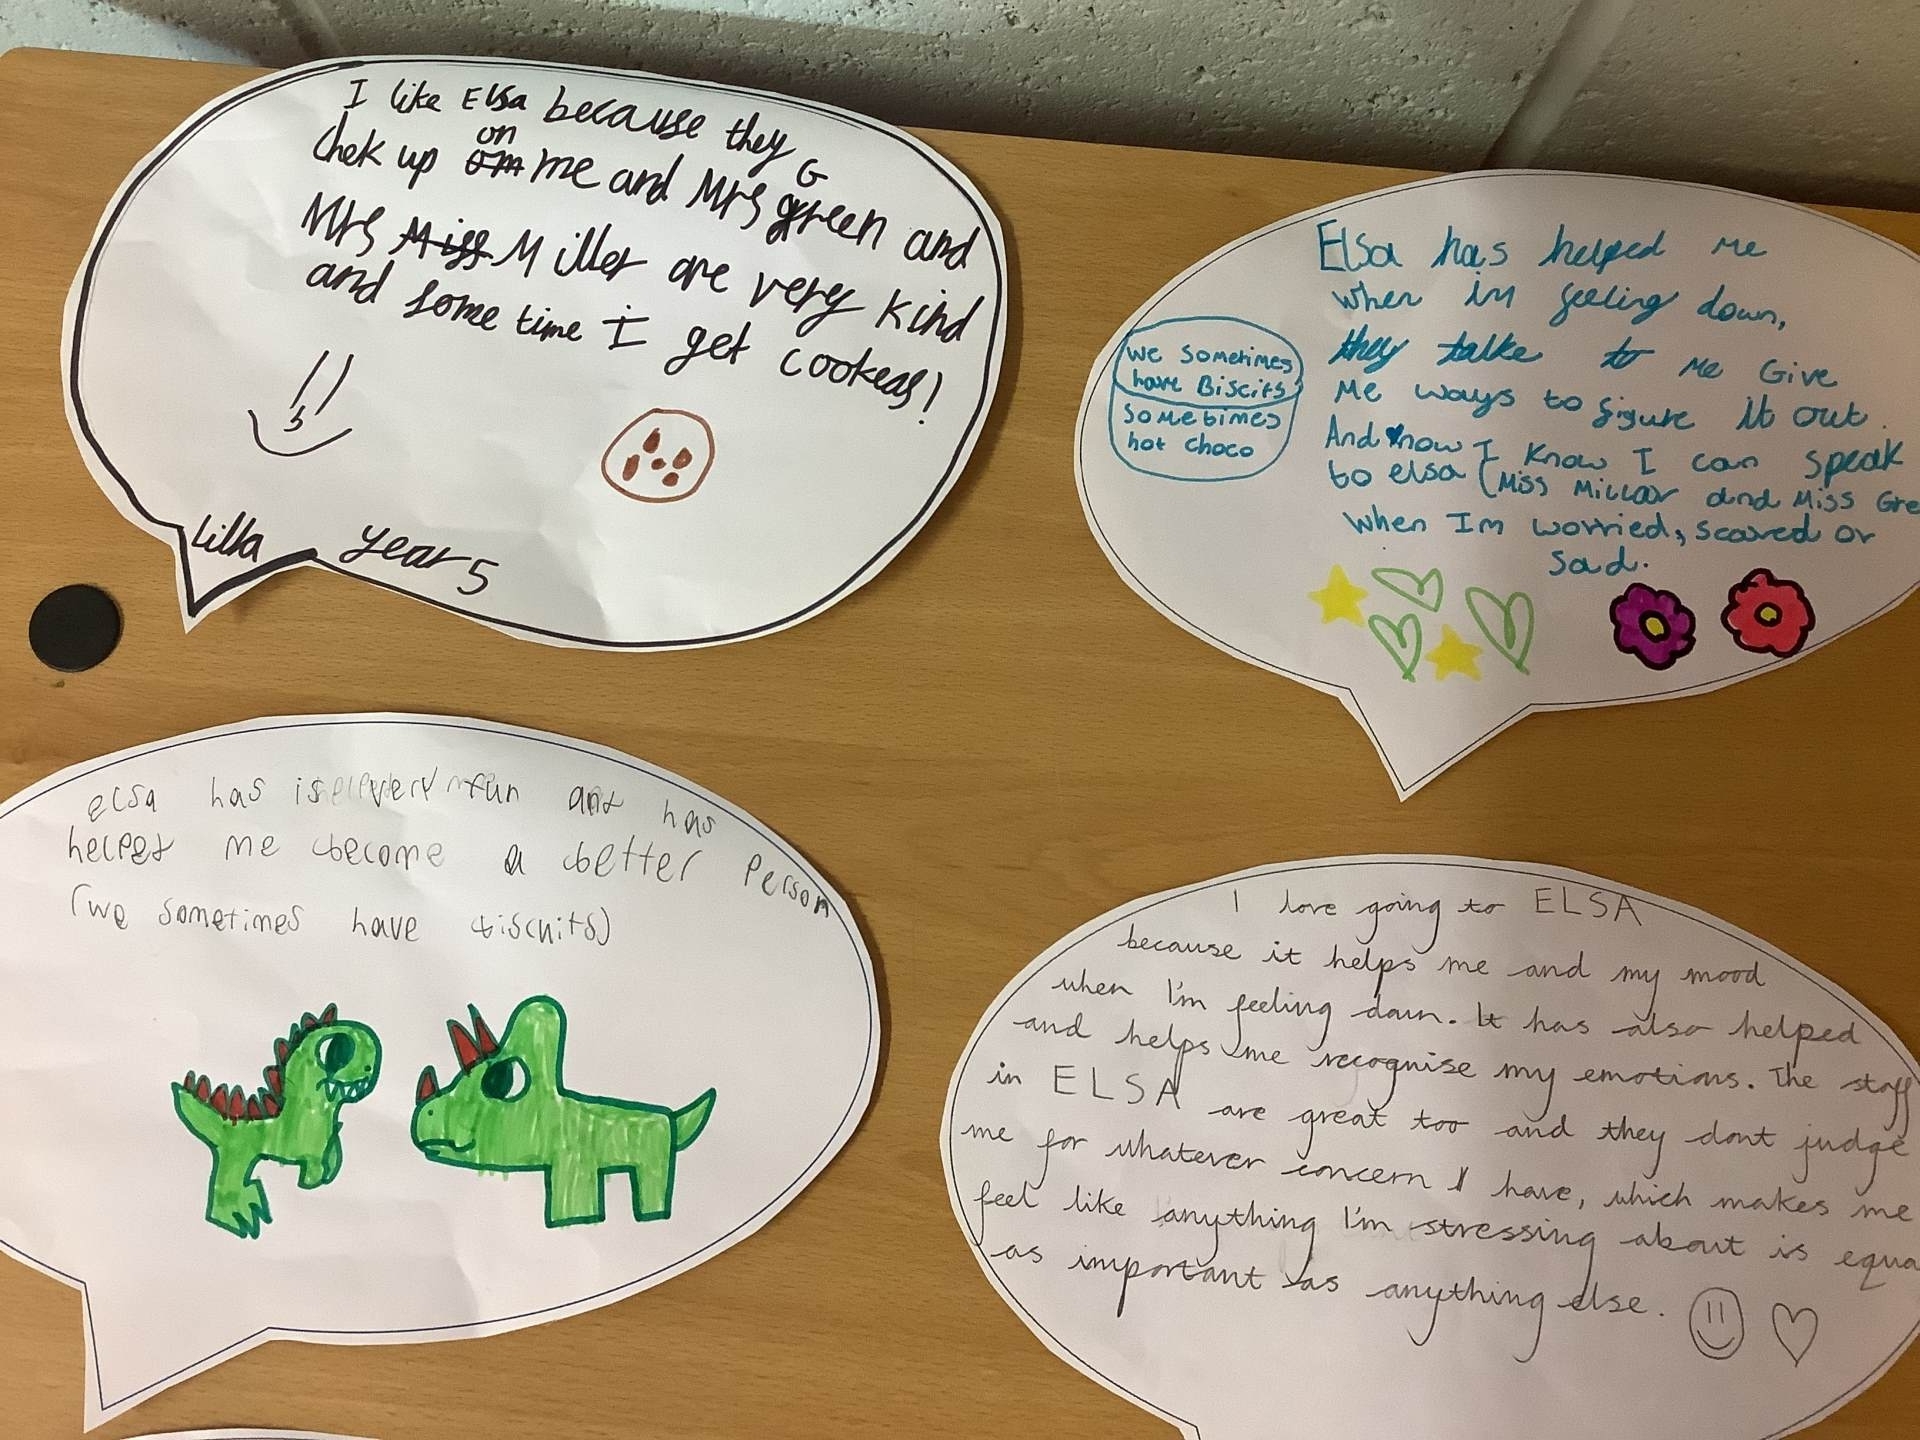 I like Elsa because they
chek up on me and Mrs Green and
Mrs Miller are very kind
and some time I get cookeas!
Lilla year 5
Elsa has helped me
when im feeling down,
they talke to me Give
me ways to figure it out.
And now I know I can speak
to elsa (Miss Millar and Miss Gre
when Im worried, scared or
sad.
we sometimes
have Biscits
sometimes
hot choco
elsa has is very fun and has
helped me become a better person
(we sometimes have biscuits)
I love going to ELSA
because it helps me and my mood
when I'm feeling down. It has also helped
and helps me recognise my emotions. The staff
in ELSA are great too and they dont judge
me for whatever concern I have, which makes me
feel like anything I'm stressing about is equa
as important as anything else.